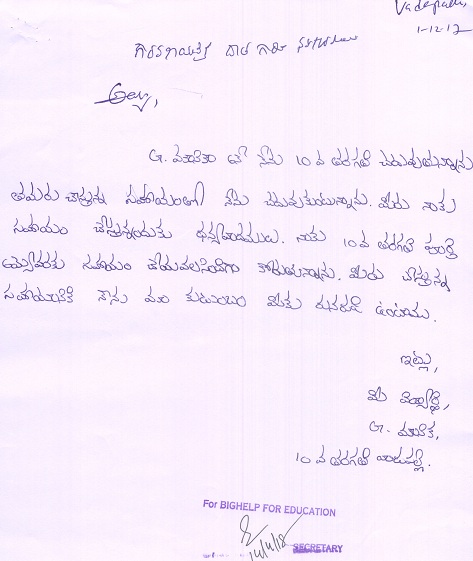 Vadapalli,
1-12-17
గౌరవనీయులైన దాత గారికి నమస్కారములు
G. మౌనిక అనే నేను 10 వ తరగతి చదువుతున్నాను
తమరు చేస్తున్న సహాయంతో నేను చదువుకుంటున్నాను. మీరు నాకు
సహాయం చేస్తున్నందుకు ధన్యవాదములు. నాకు 10 వ తరగతి పూర్తి
అయ్యేవరకు సహాయం చేయవలసిందిగా కోరుతున్నాను. మీరు చేస్తున్న
సహాయానికి నాను మా కుటుంబం మీకు రుణపడి ఉంటాము.
ఇట్లు,
మీ విద్యార్థి,
G. మౌనిక,
10 వ తరగతి వాడపల్లి.
For BIGHELP FOR EDUCATION
SECRETARY